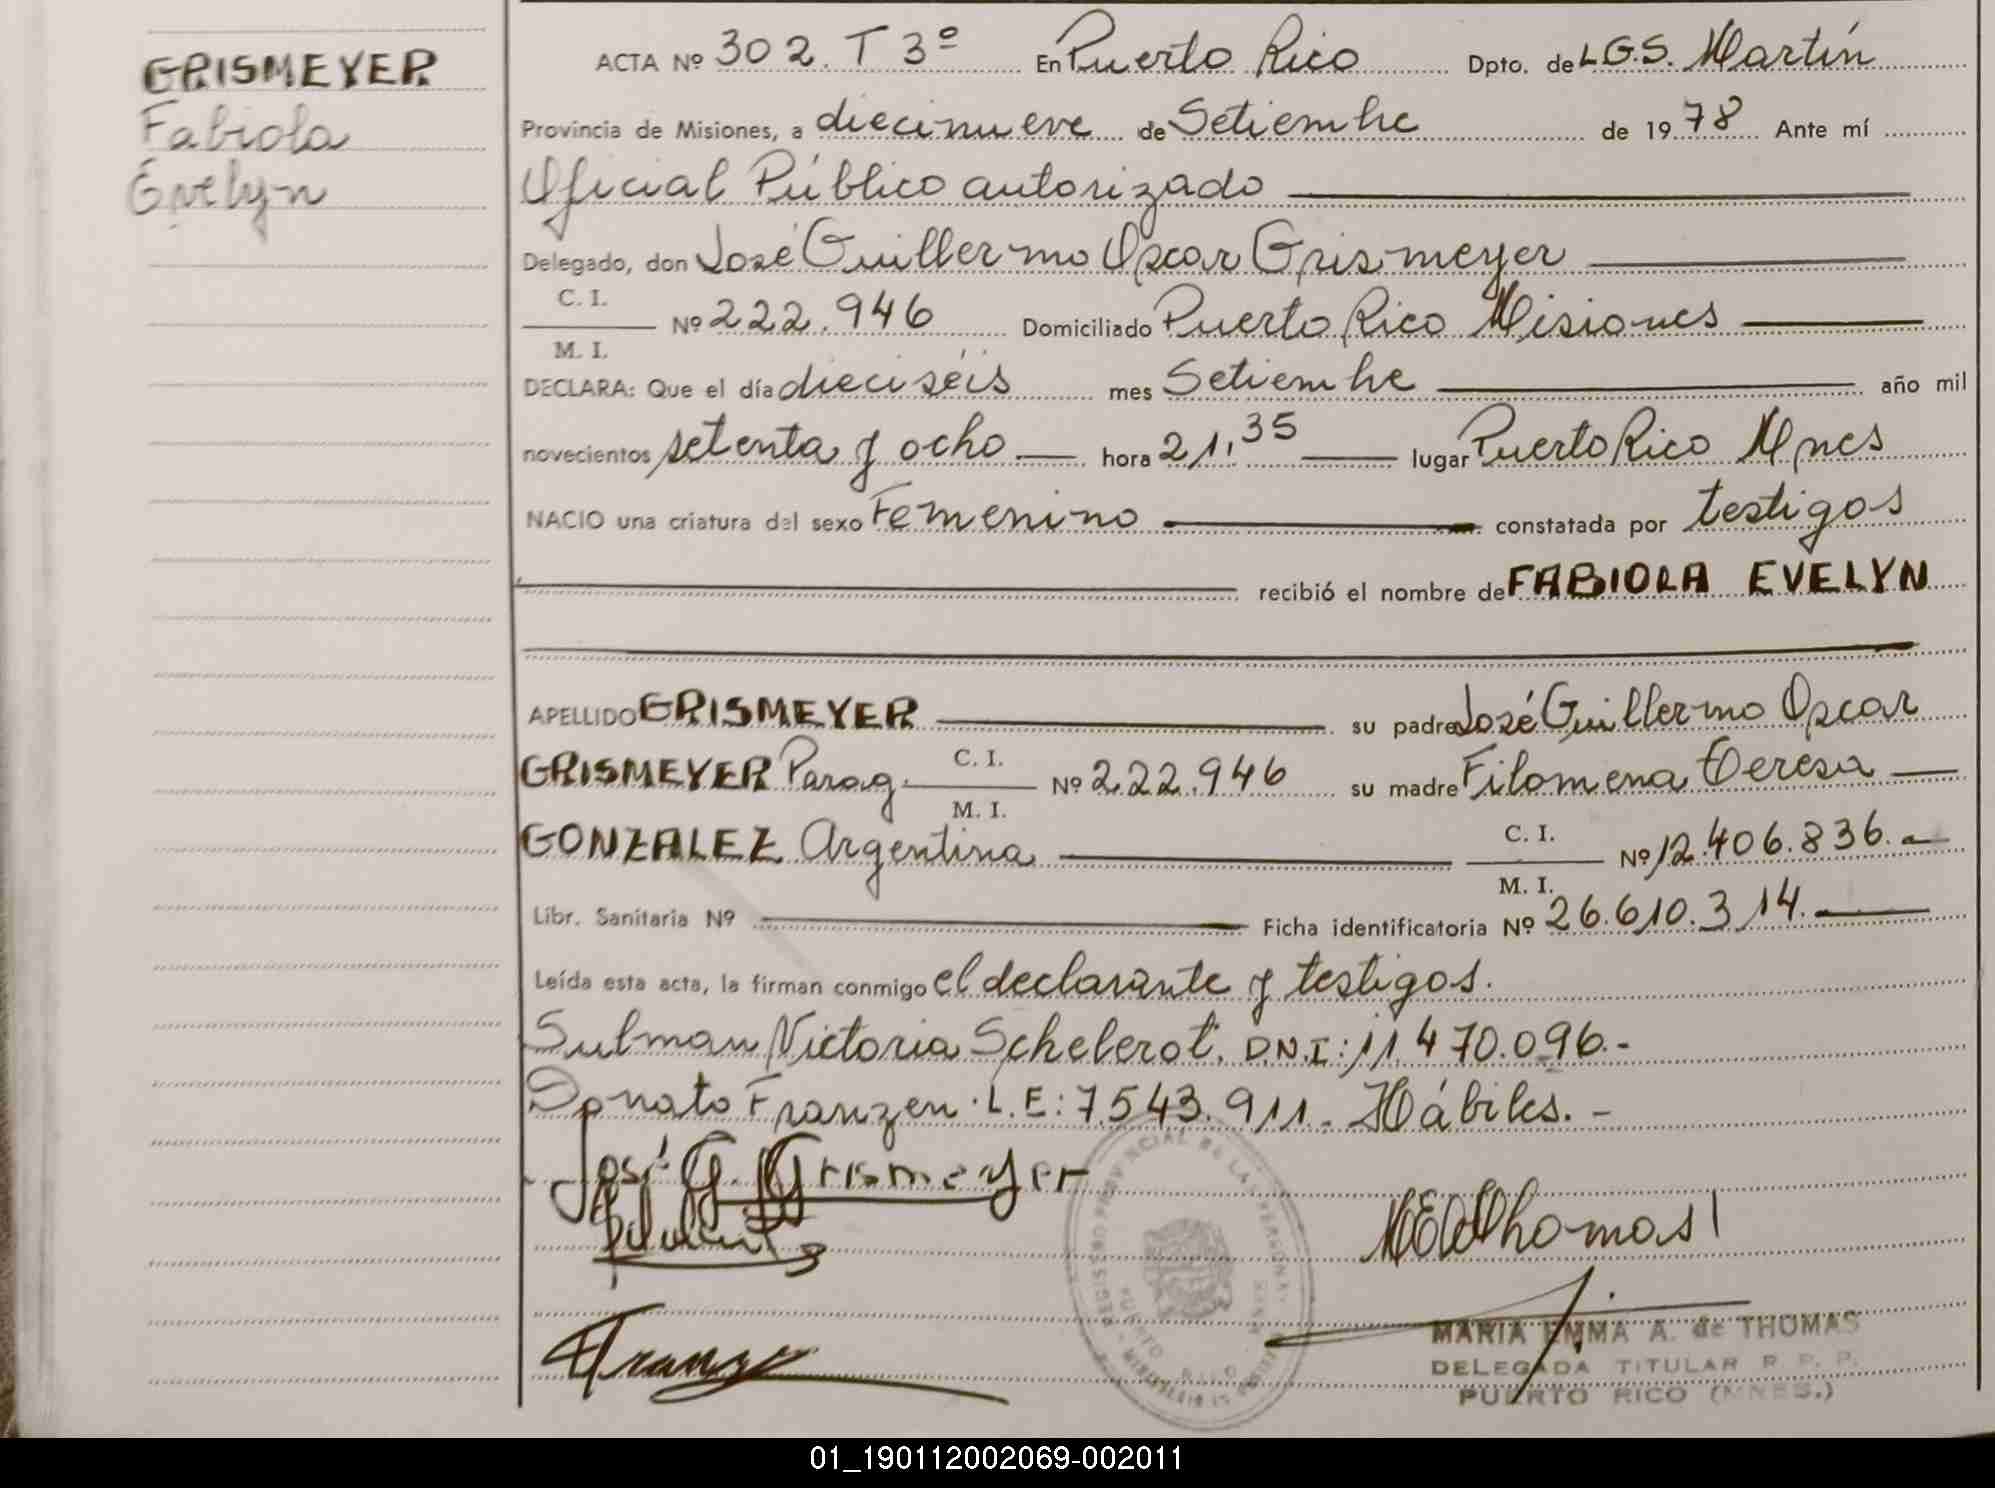 GRISMEYER
Fabiola
Evelyn
ACTA Nº 302. T 3º En Puerto Rico Dpto. de L.G.S. Martín
Provincia de Misiones, a diecinueve de Setiembre de 1978 Ante mí
Oficial Público autorizado
Delegado, don José Guillermo Oscar Grismeyer
C. I.
Nº 222.946 Domiciliado Puerto Rico Misiones
M. I.
DECLARA: Que el día dieciséis mes Setiembre año mil
novecientos setenta y ocho hora 21,35 lugar Puerto Rico Mnes
NACIO una criatura del sexo Femenino constatada por testigos
recibió el nombre de FABIOLA EVELYN
APELLIDO GRISMEYER su padre José Guillermo Oscar
GRISMEYER Parag. C. I. Nº 222.946 su madre Filomena Teresa
M. I.
GONZALEZ Argentina C. I. Nº 12.406.836.-
M. I.
Libr. Sanitaria Nº Ficha identificatoria Nº 26.610.314.
Leída esta acta, la firman conmigo el declarante y testigos.
Sulman Victoria Schelerot. D.N.I: 11.470.096.-
Donato Franzen. L.E: 7.543.911. Hábiles.-
José G. Grismeyer
Thomas
MARIA EMMA A. de THOMAS
DELEGADA TITULAR R. P. P.
PUERTO RICO (MNES.)
REGISTRO PROVINCIAL DE LAS PERSONAS
PUERTO RICO
01_190112002069-002011